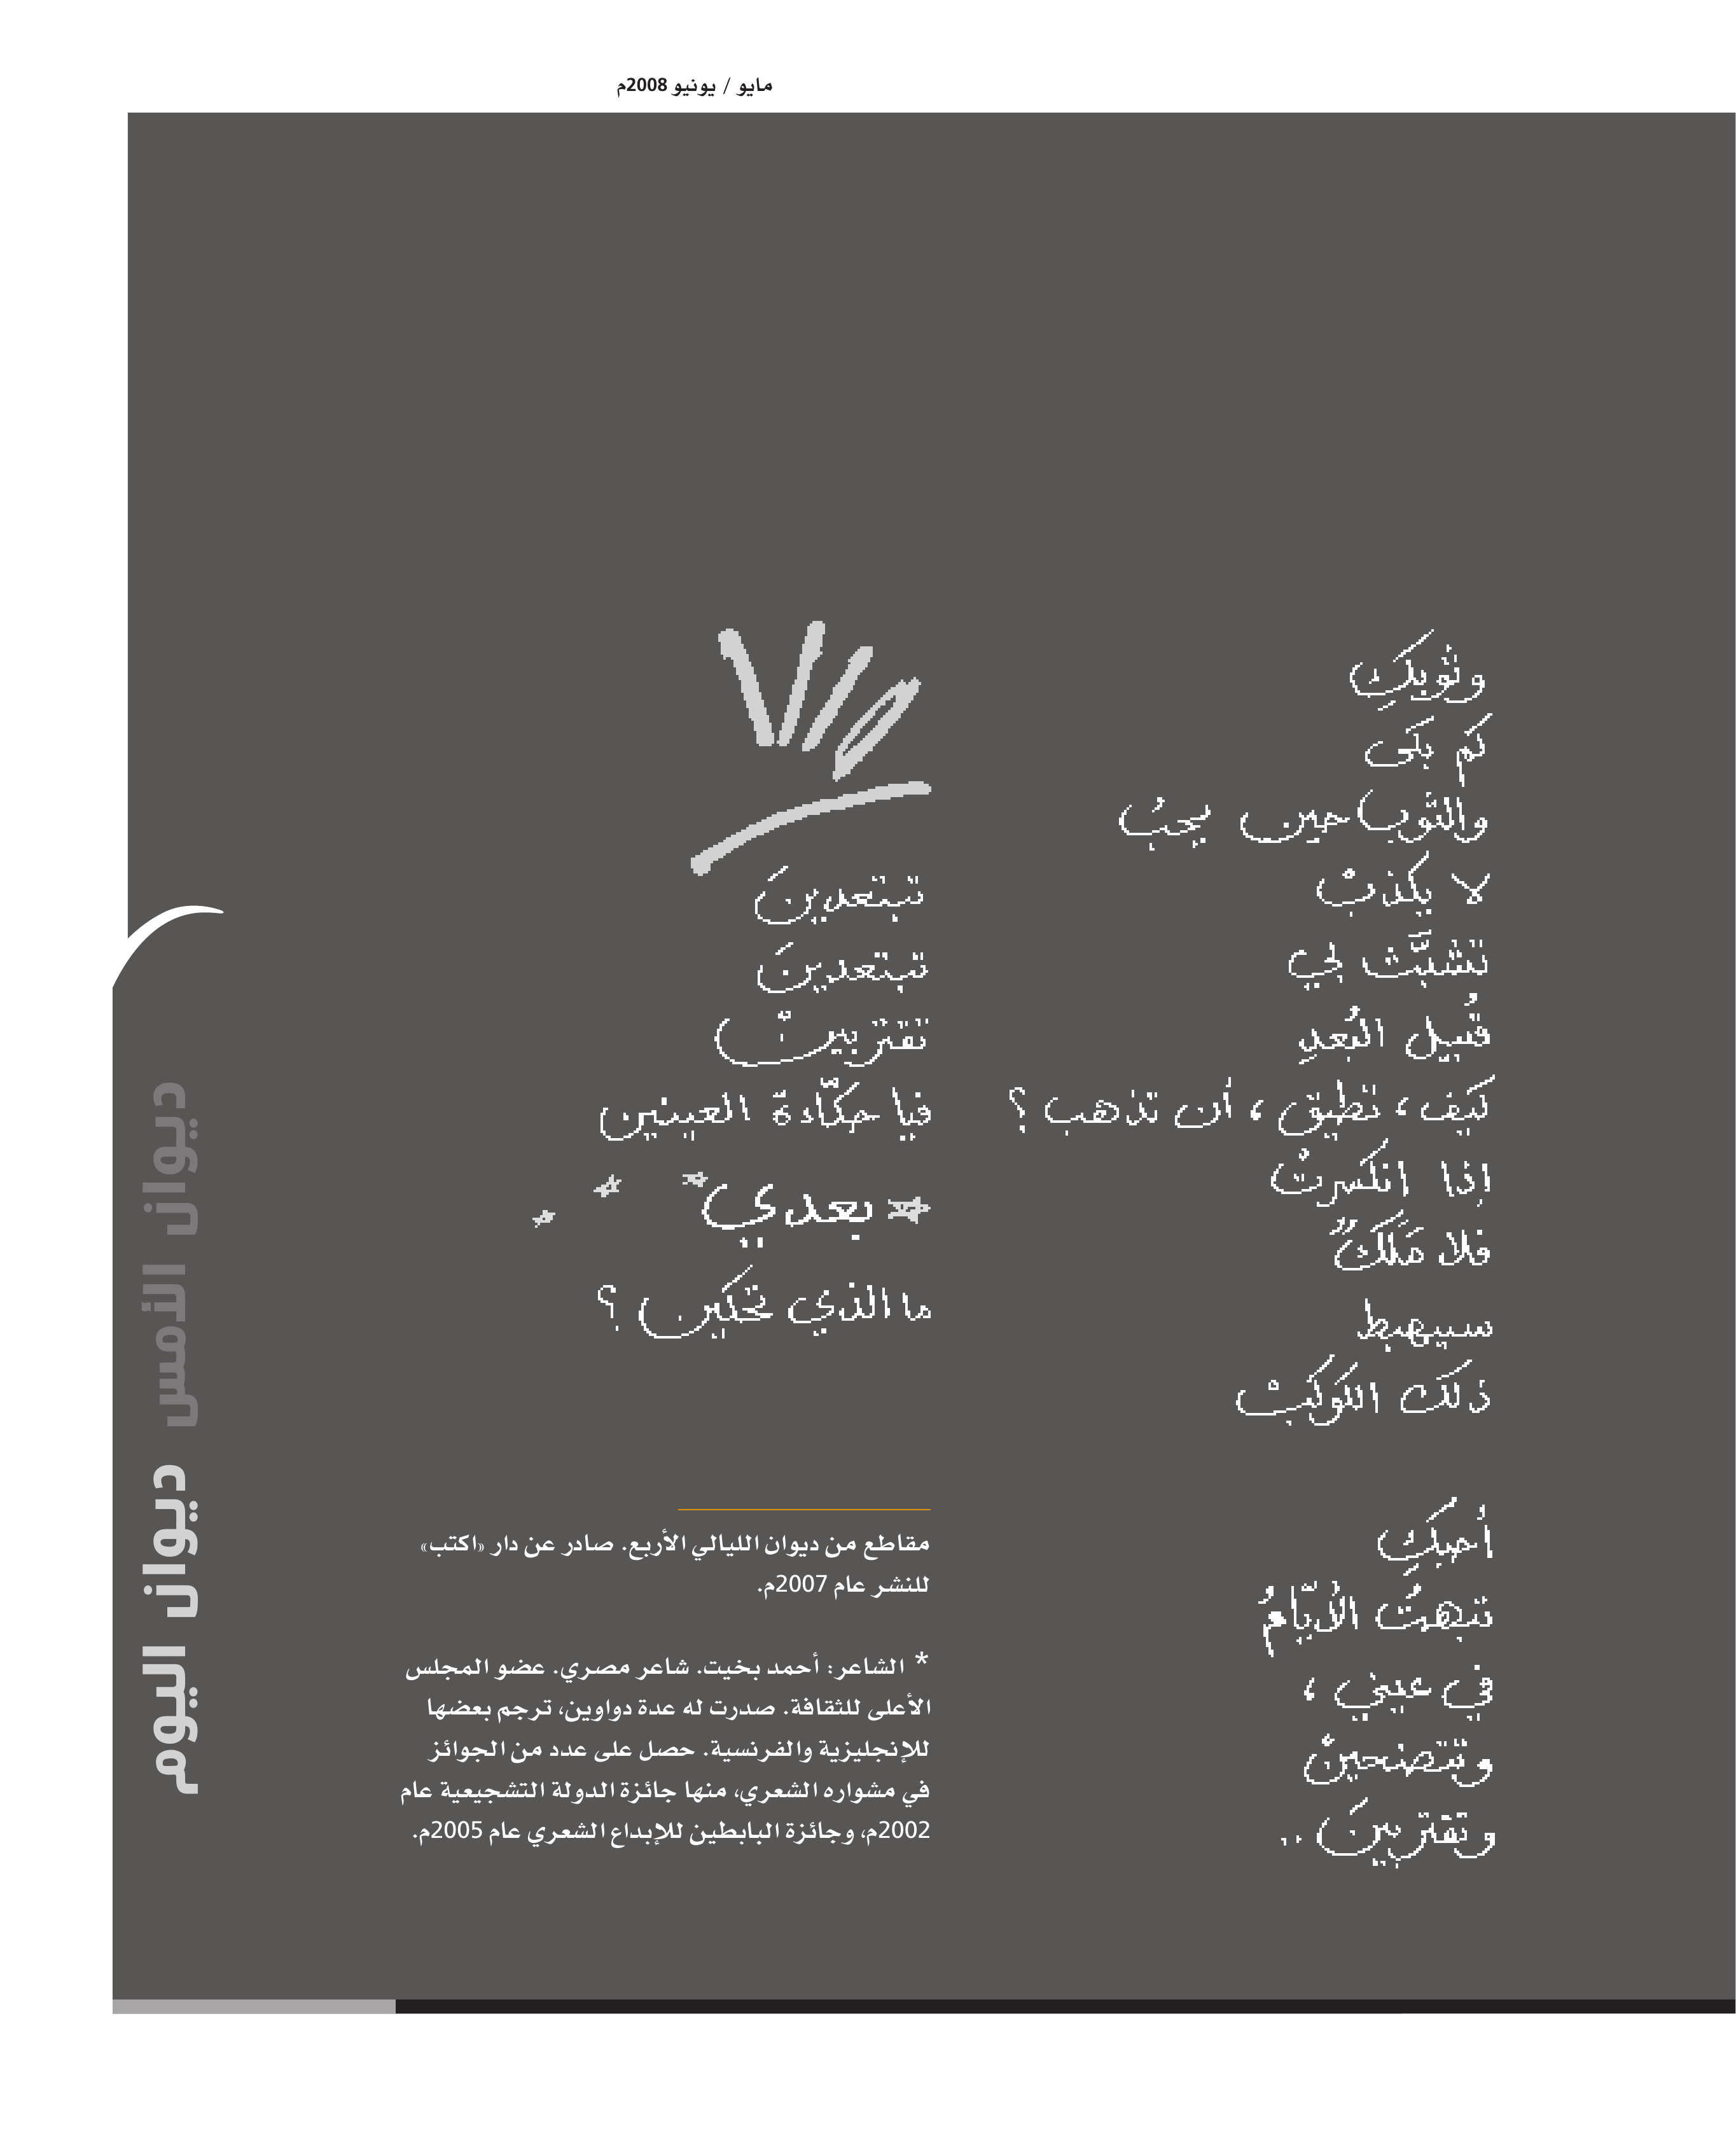 مايو / يونيو 2008م
وثوبكِ
كم بكى
والثوب حين يحبُ
لا يكذبْ
تشبَّث بي
قُبيل البُعدِ
كيف، تطيق، أن تذهب؟
إذا انكسرتْ
فلا مَلَكٌ
سيهبط
ذلك الكوكبْ
أُحبكِ
تبهتُ الأيّامُ
في عيني،
وتتضحينْ
وتقتربينَ..
تبتعدينَ
تبتعدينَ
تقتربينْ
فيا حكّاءة العينين
بعدي
ما الذي تحكين؟
مقاطع من ديوان الليالي الأربع. صادر عن دار «اكتب»
للنشر عام 2007م.
* الشاعر: أحمد بخيت. شاعر مصري. عضو المجلس
الأعلى للثقافة. صدرت له عدة دواوين، ترجم بعضها
للإنجليزية والفرنسية. حصل على عدد من الجوائز
في مشواره الشعري، منها جائزة الدولة التشجيعية عام
2002م، وجائزة البابطين للإبداع الشعري عام 2005م.
ديوان الأمس ديوان اليوم